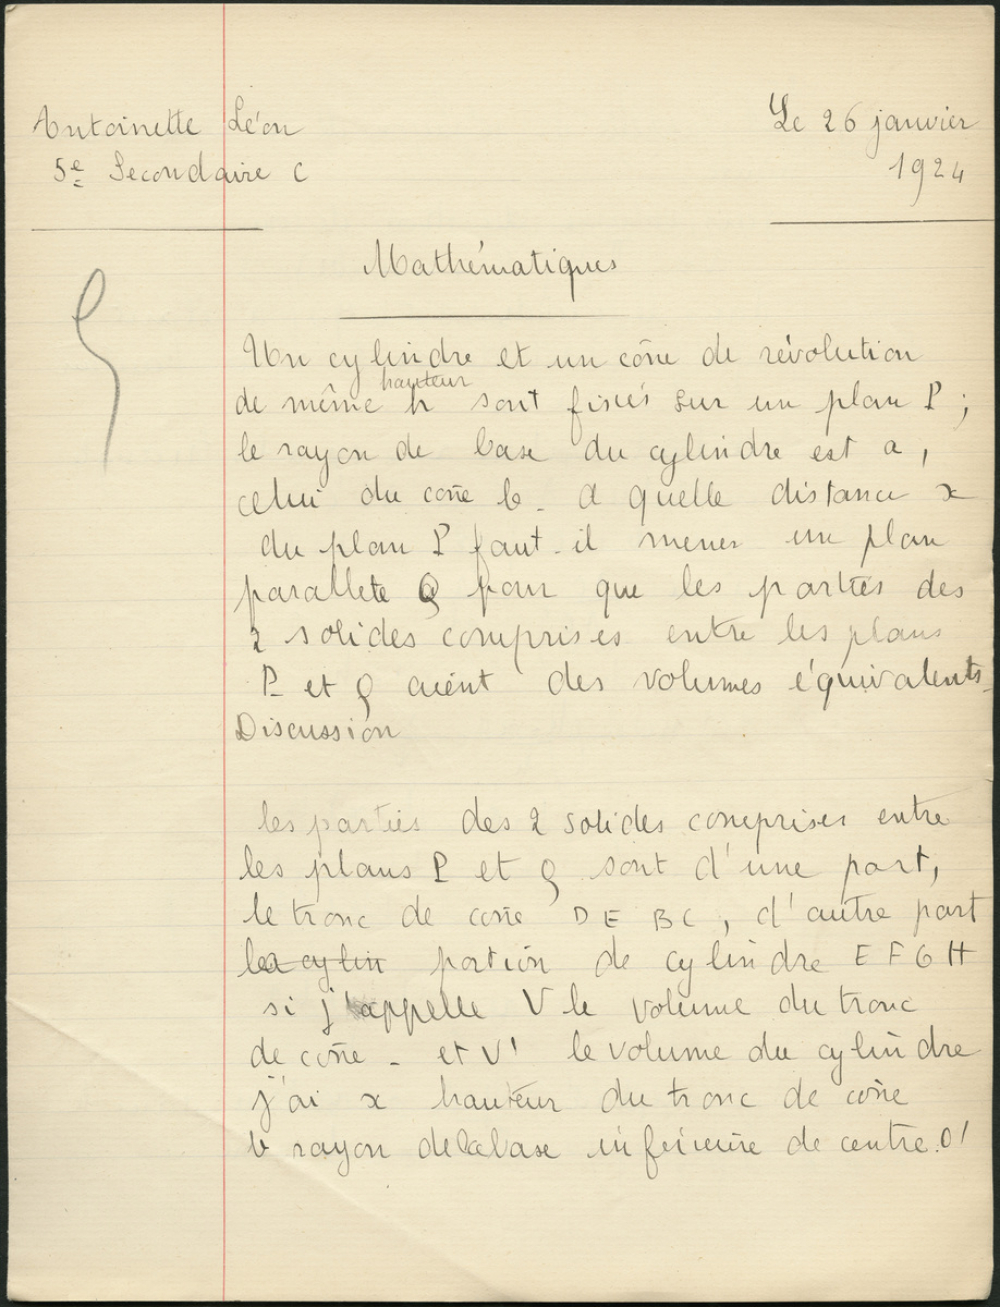 Antoinette Léon
Le 26 janvier
5e Secondaire C
1924
Mathématiques
Un cylindre et un cône de révolution
hauteur
de même h sont fixés sur un plan P ;
le rayon de base du cylindre est a,
celui du cône b. A quelle distance x
du plan P faut-il mener un plan
parallele Q pour que les parties des
2 solides comprises entre les plans
P et Q aient des volumes équivalents.
Discussion
les parties des 2 solides comprises entre
les plans P et Q sont d'une part,
le tronc de cône D E B C, d'autre part
la cylin portion de cylindre E F G H
si j'appelle V le volume du tronc
de cône - et V' le volume du cylindre
j'ai x hauteur du tronc de cône
b rayon de la base inférieure de centre O'